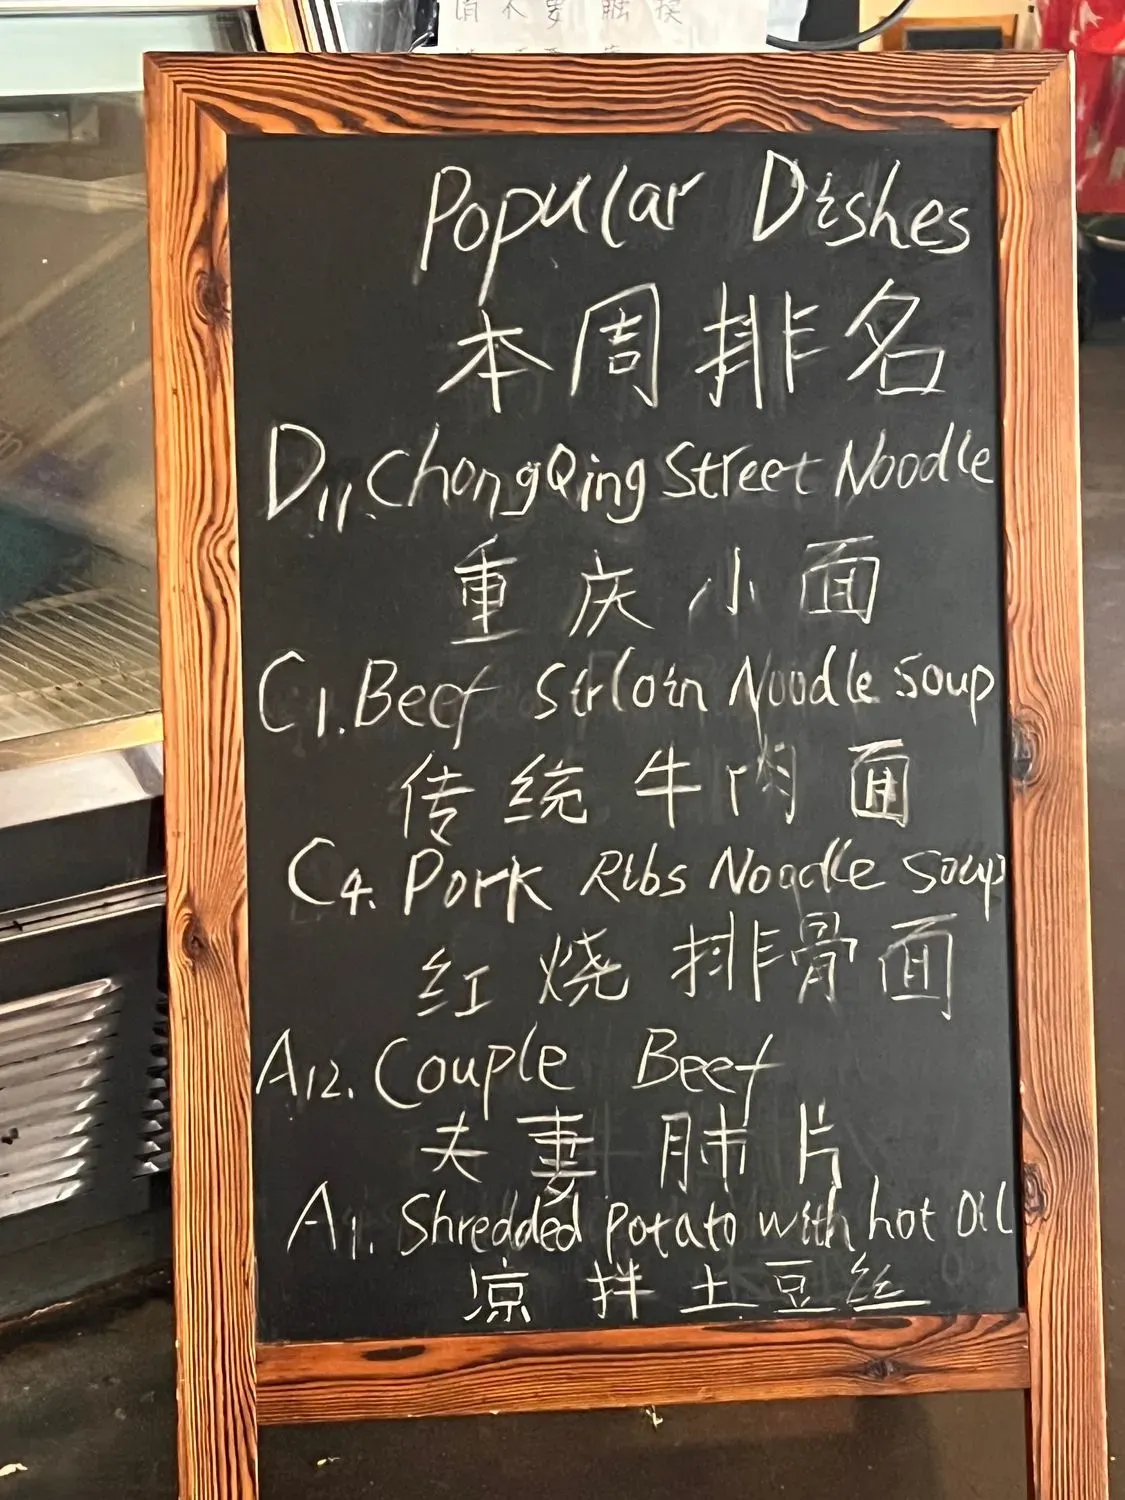 请不要触摸
Popular Dishes
本周排名
D11. ChongQing Street Noodle
重庆小面
C1. Beef Sirloin Noodle Soup
传统牛肉面
C4. Pork Ribs Noodle Soup
红烧排骨面
A12. Couple Beef
夫妻肺片
A1. Shredded Potato with hot Oil
凉拌土豆丝